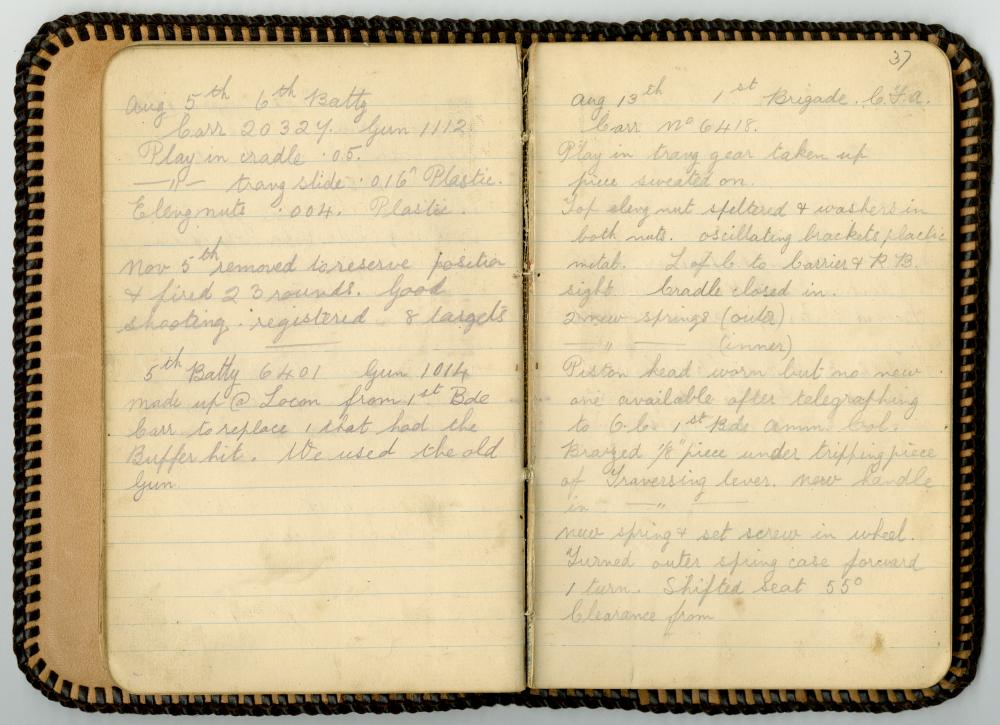 Aug 5th 6th Batty
Carr 20324. Gun 1112.
Play in cradle .05.
—〃— travg slide .016" Plastic.
Elevg nuts .004. Plastic.
Nov 5th removed to reserve position
& fired 23 rounds. Good
shooting. registered 8 targets
5th Batty 6401 Gun 1014
made up @ Locon from 1st Bde
Carr to replace 1 that had the
Buffer hit. We used the old
Gun
37
Aug 13th 1st Brigade. C.F.A.
Carr No 6418.
Play in travg gear taken up
piece sweated on.
Top elevg nut speltered & washers in
both nuts. oscillating brackets plastic
metal. L of C to Carrier & R.B.
sight Cradle closed in.
2 new springs (outer)
—〃— (inner)
Piston head worn but no new
one available after telegraphing
to O.C. 1st Bde Amm. Col.
Brazed 1/8" piece under tripping piece
of Traversing lever. new handle
in —〃—
new spring & set screw in wheel.
Turned outer spring case forward
1 turn. Shifted seat 55°
Clearance from